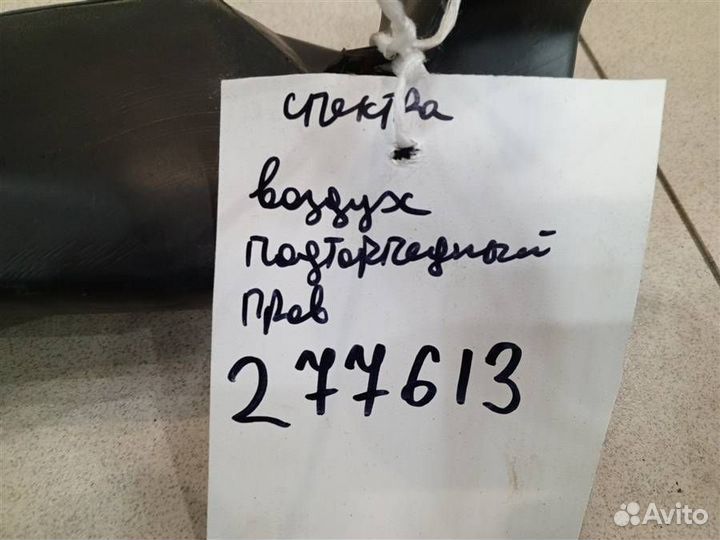 спектра
воздух
подторпедный
прав
277613
Avito